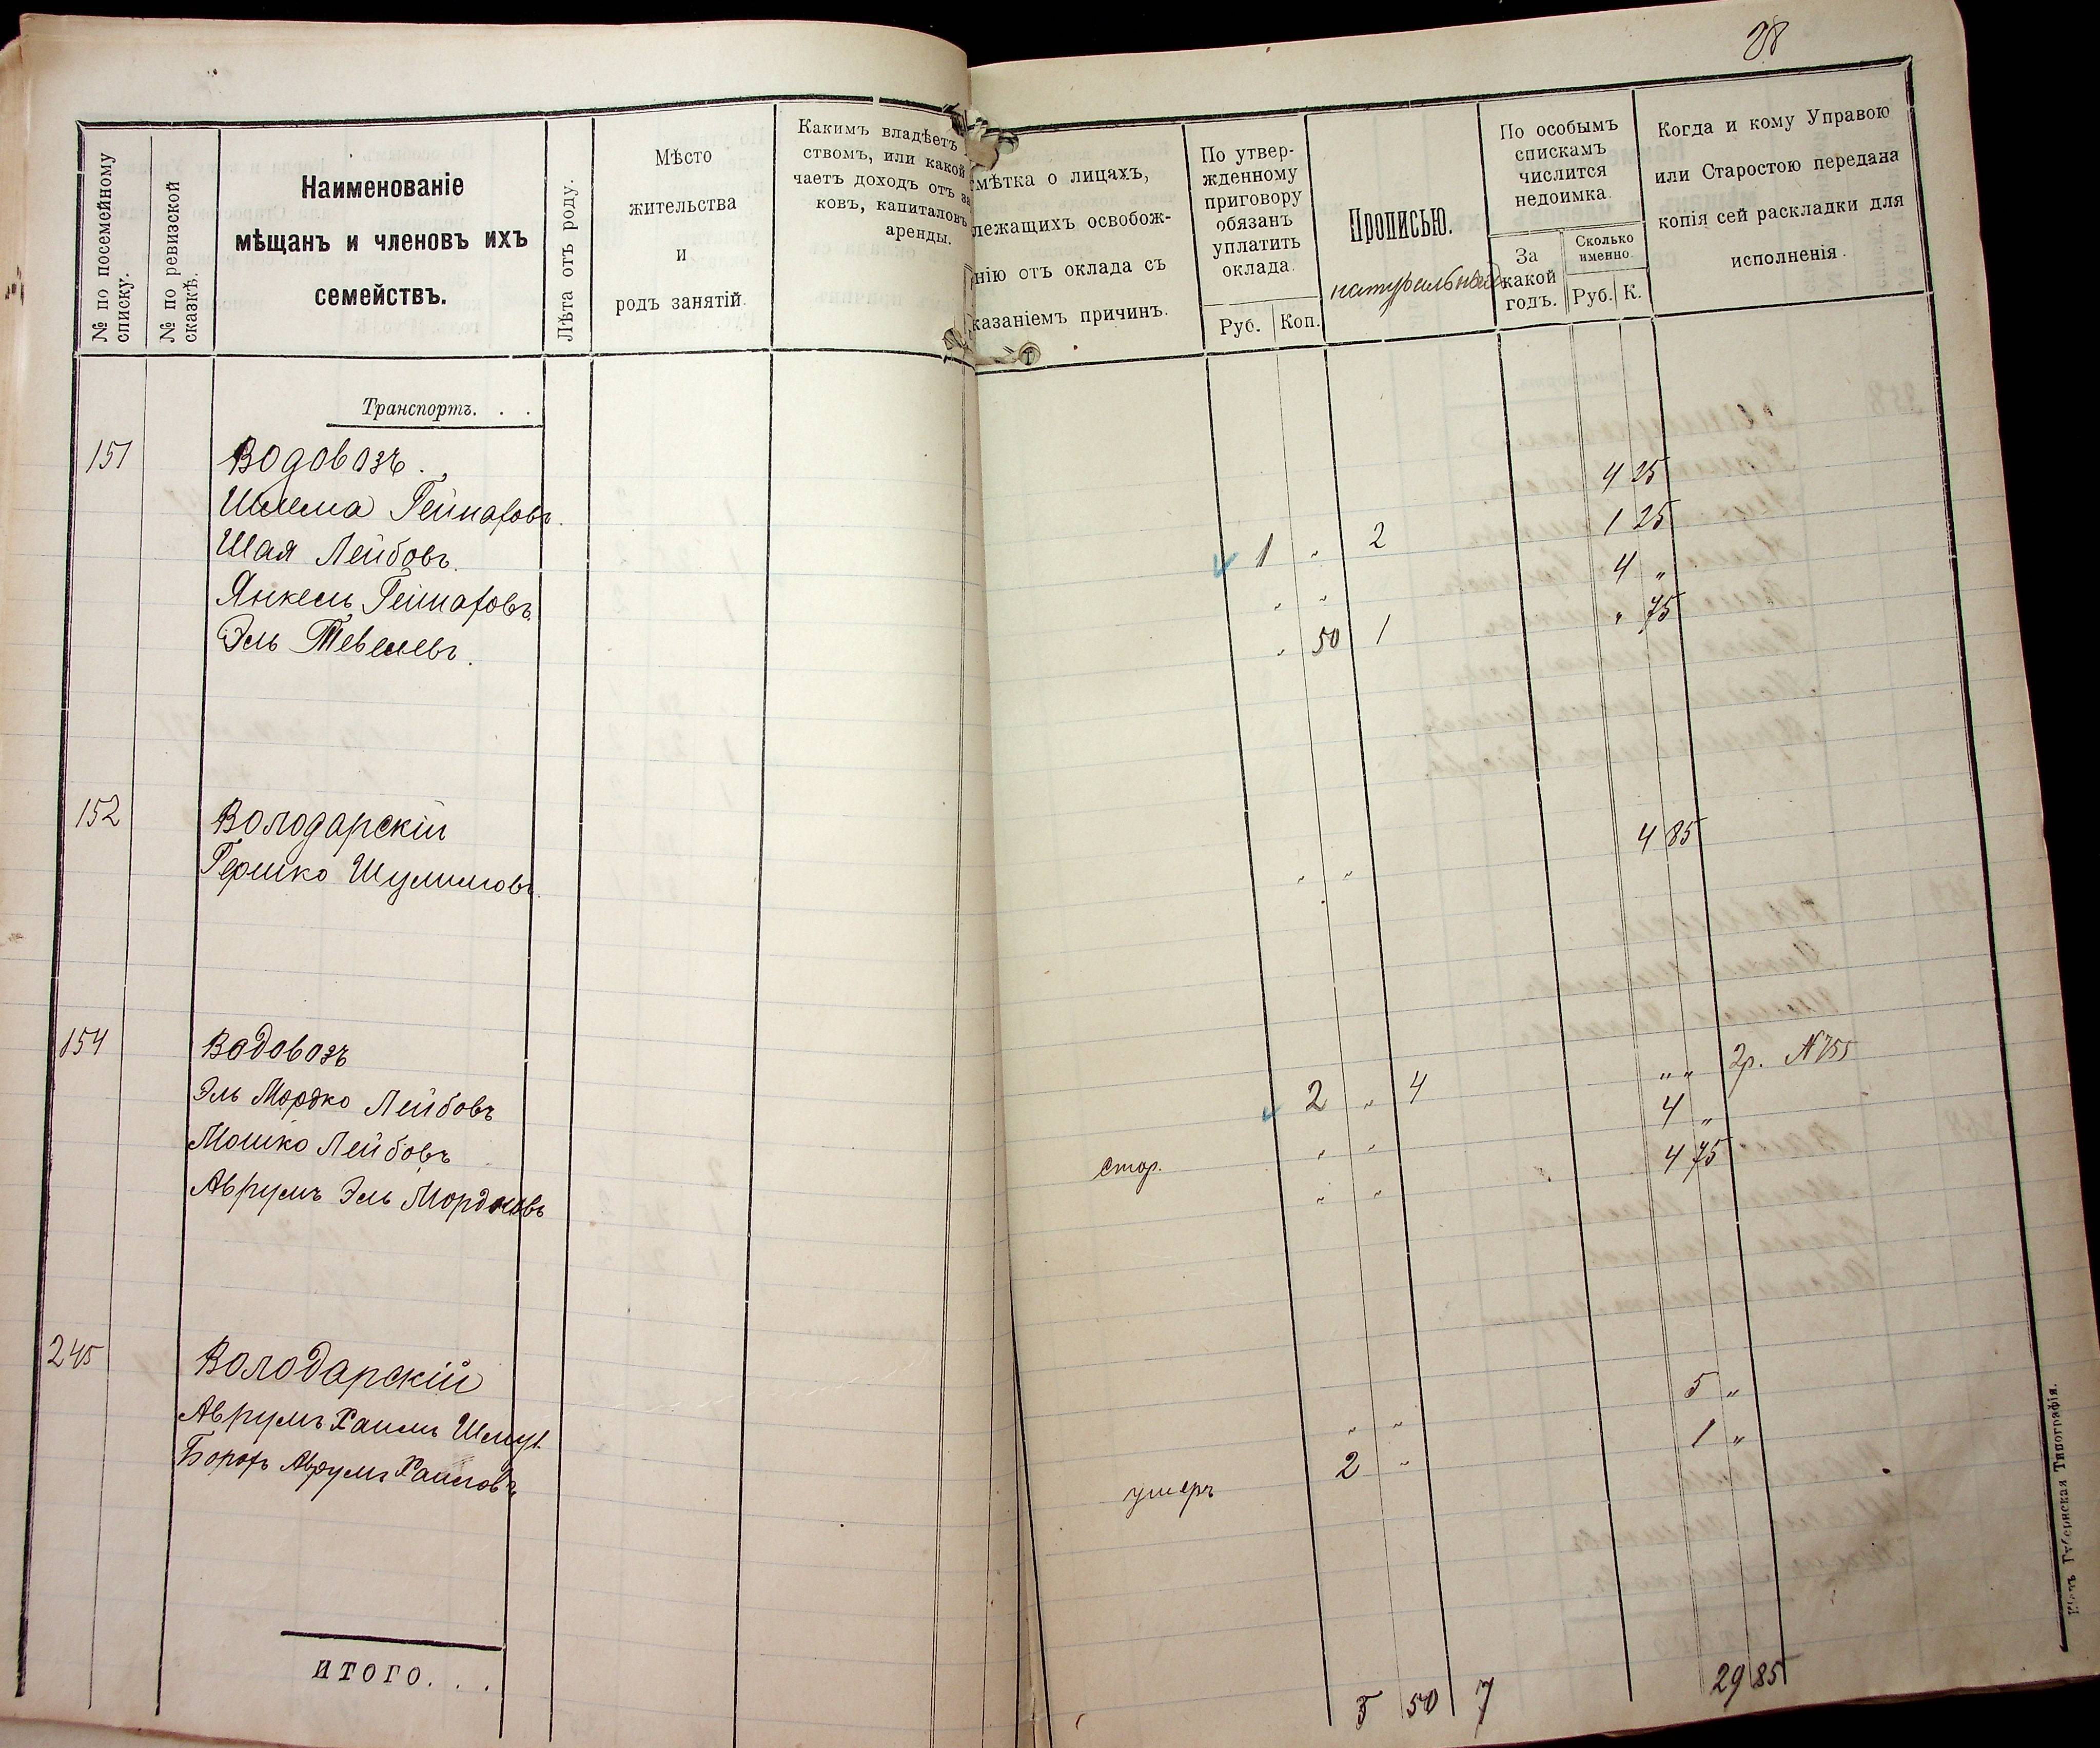 38
№ по посемейному списку.
№ по ревизской сказкѣ.
Наименованіе
мѣщанъ и членовъ ихъ
семействъ.
Лѣта отъ роду.
Мѣсто
жительства
и
родъ занятій.
Какимъ владѣетъ
ствомъ, или какой
чаетъ доходъ отъ за
ковъ, капиталовъ
аренды.
мѣтка о лицахъ,
лежащихъ освобож-
нію отъ оклада съ
казаніемъ причинъ.
По утвер-
жденному
приговору
обязанъ
уплатить
оклада.
Руб. Коп.
Прописью.
По особымъ
спискамъ
числится
недоимка.
За какой годъ.
Сколько именно.
Руб. К.
Когда и кому Управою
или Старостою передана
копія сей раскладки для
исполненія.
Транспортъ. . .
151 Водовозъ. 4 25
Шлема 1 „ 2 1 25
Шая Лейбовъ. „ „ 4 „
Янкель „ 50 1 „ 75
Эль Тевелевъ.
152 Володарскій 4 85
Гершко Шулимовъ. „ „
154 Водовозъ „ „ 2р. №755
Эль Мордко Лейбовъ 2 „ 4 4 „
Мошко Лейбовъ стар. „ „ 4 75
Аврумъ Эль Мордковъ „ „
245 Володарскій 5 „
Аврумъ Хаимъ „ „ 1 „
Аврумъ Хаимовъ умеръ 2 „
ИТОГО. . . 5 50 7 29 85
Губернская Типографія.